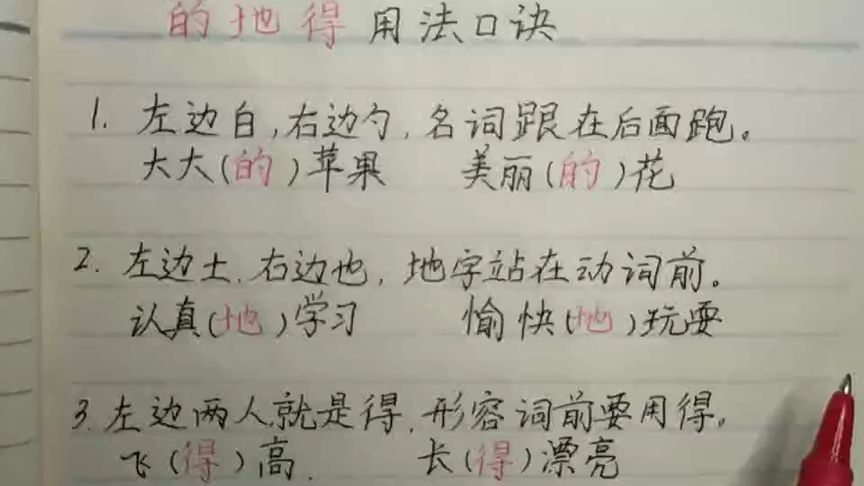 的地得用法口诀
1. 左边白,右边勺,名词跟在后面跑。
大大(的)苹果 美丽(的)花
2. 左边土,右边也,地字站在动词前。
认真(地)学习 愉快(地)玩耍
3. 左边两人就是得,形容词前要用得。
飞(得)高. 长(得)漂亮